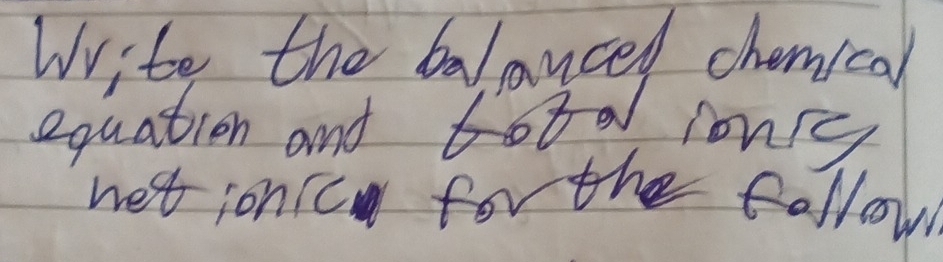 Write the balanced chemical
equation and total ionic
net ionic for the follow